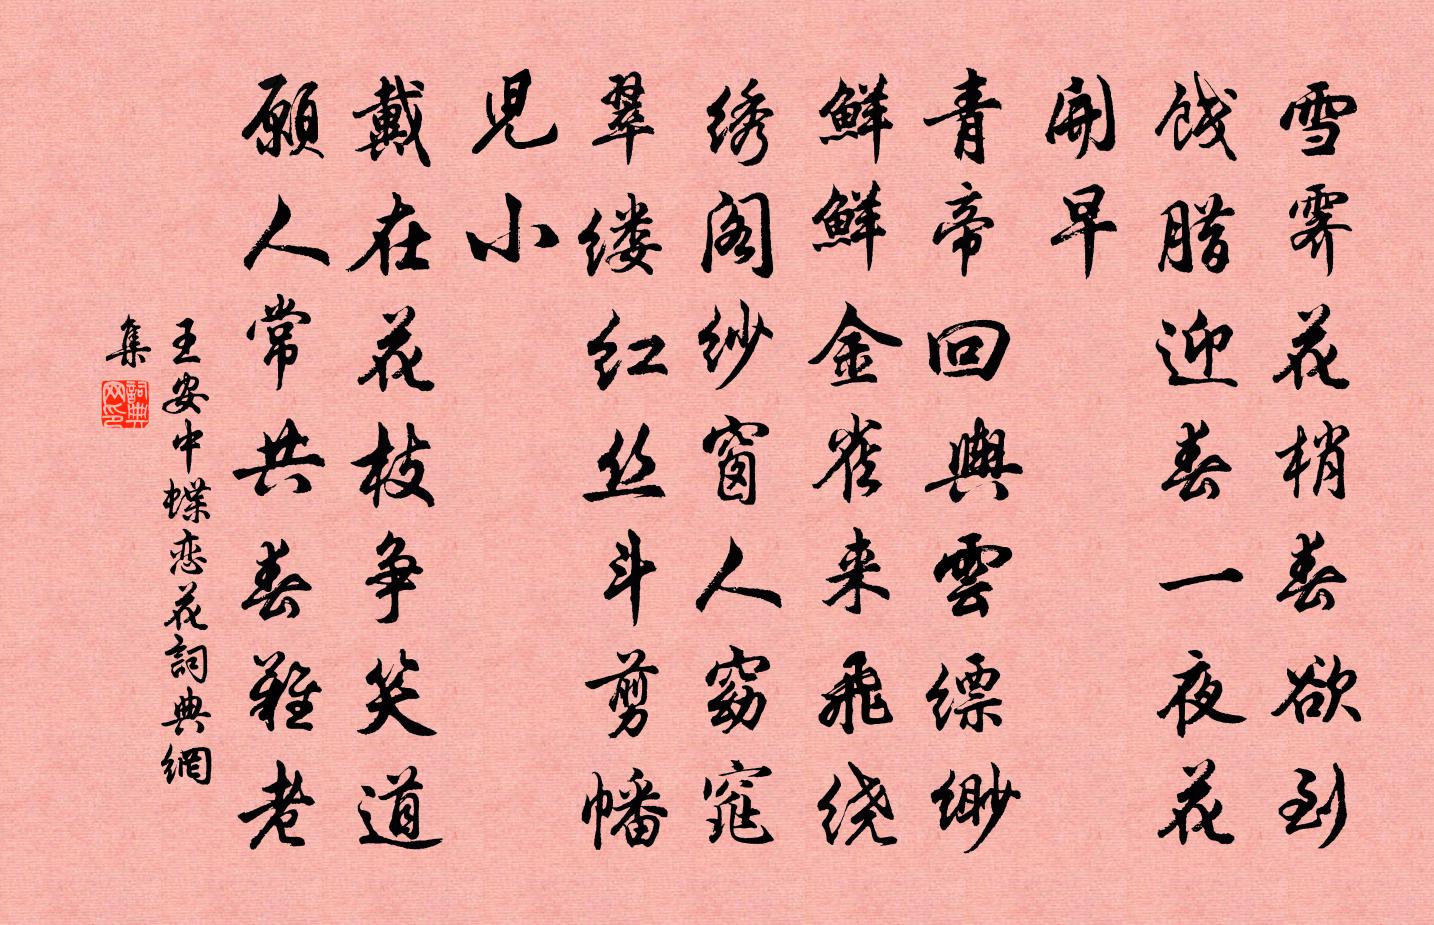 雪霁花梢春欲到
饯腊迎春一夜花
開早
青帝回輿雲缥缈
鮮鮮金雀来飛绕
绣阁纱窗人窈窕
翠缕红丝斗剪幡
児小
戴在花枝争笑道
願人常共春難老
王安中蝶恋花詞典網
集
詞典
网印